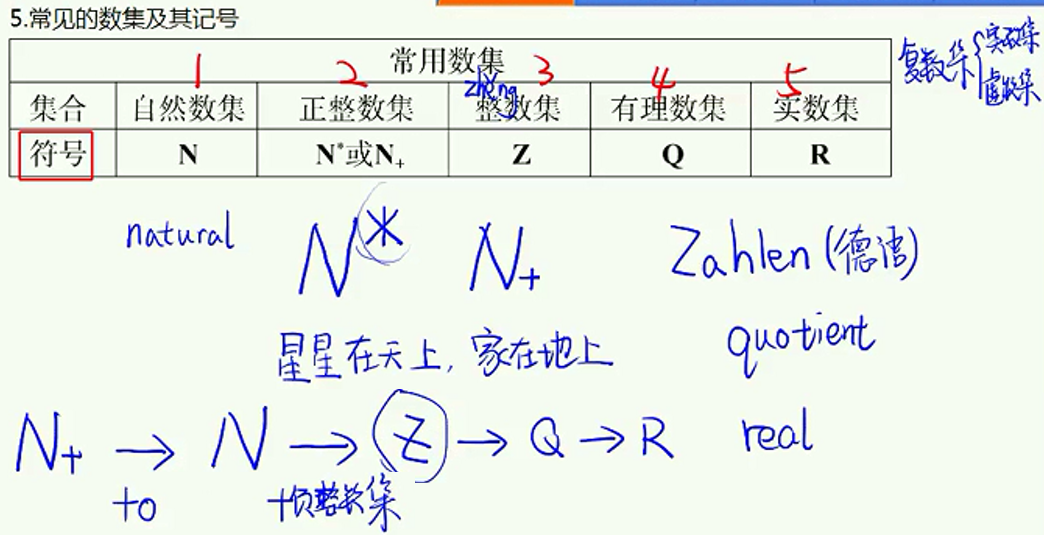 5.常见的数集及其记号
常用数集
1 2 3 4 5
zhěng
集合 自然数集 正整数集 整数集 有理数集 实数集
符号 N N*或N+ Z Q R
复数集{实数集
虚数集
natural N* N+ Zahlen(德语)
星星在天上,家在地上
quotient
N+ → N → Z → Q → R real
+0 +负整数集